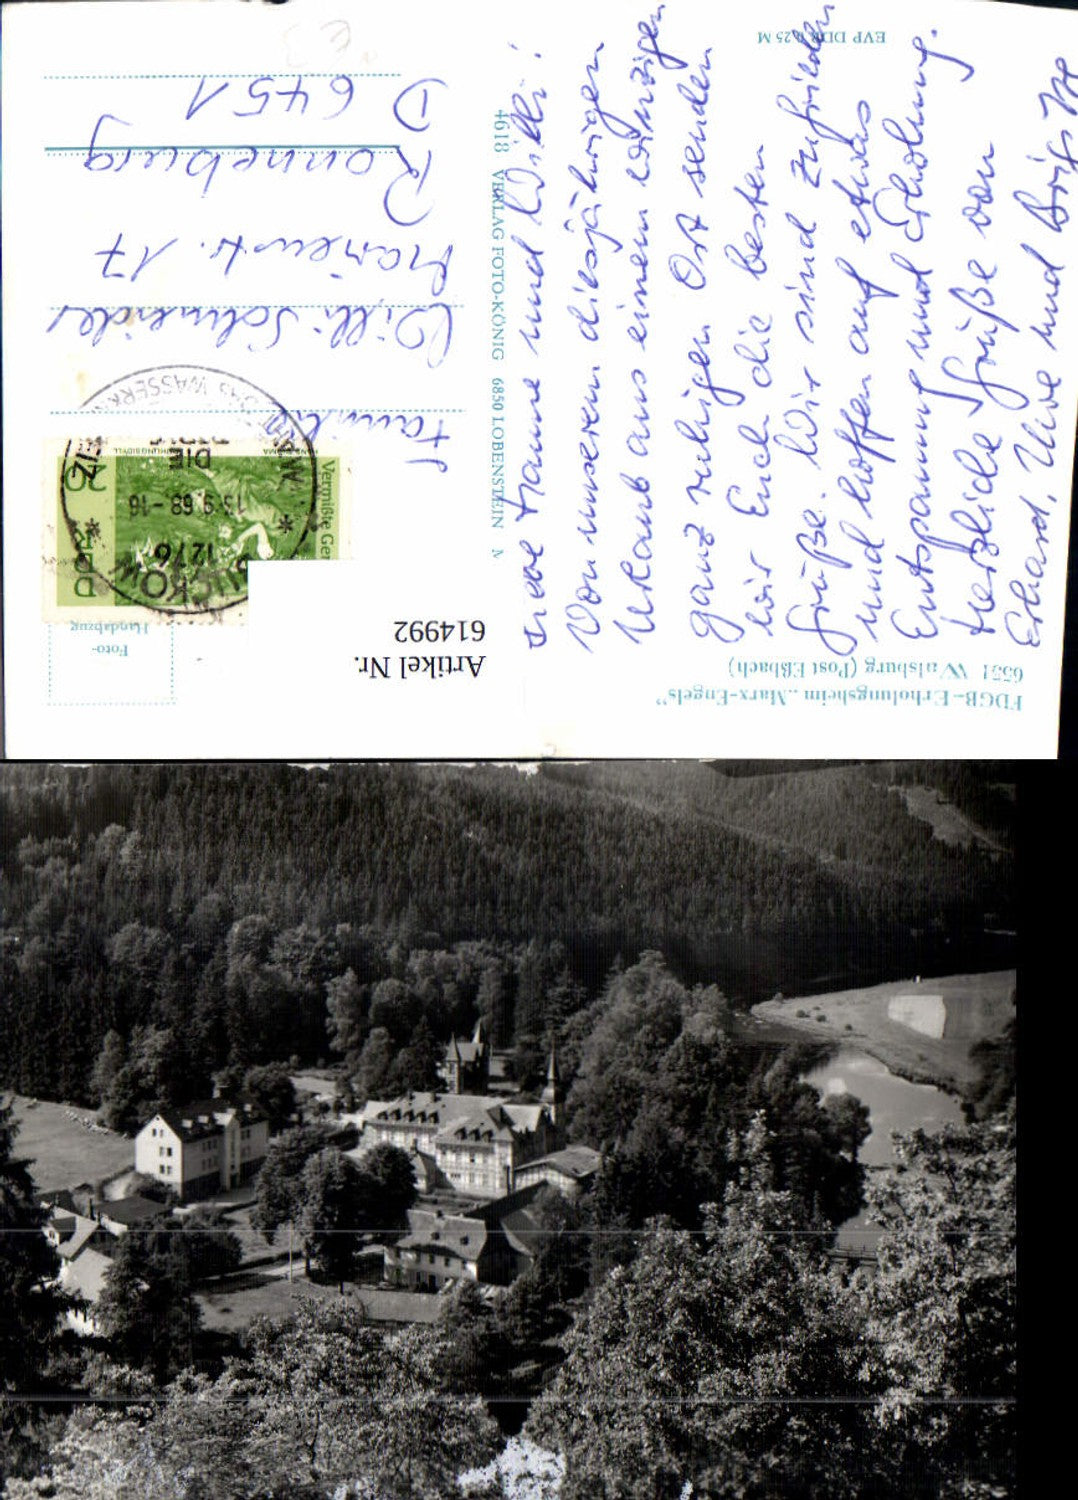 FDGB-Erholungsheim „Marx-Engels"
6551 Walsburg (Post Eßbach)
Liebe Hanne und Willi!
Von unserem diesjährigen
Urlaub aus einem winzigen
ganz ruhigen Ort senden
wir Euch die besten
Grüße. Wir sind zufrieden
und hoffen auf etwas
Entspannung und Erholung.
Herzliche Grüße von
Erhard, Uwe und Brigitte
EVP DDR 0.25 M
4618 VERLAG FOTO-KÖNIG 6850 LOBENSTEIN
Foto-
Handabzug
Artikel Nr.
614992
DDR
20
Vermißte Ge
15.9.68.-16
1276
BUCKOW
DIE
DAS WASSER
Familie
Willi Schneider
17
Ronneburg
D 6451